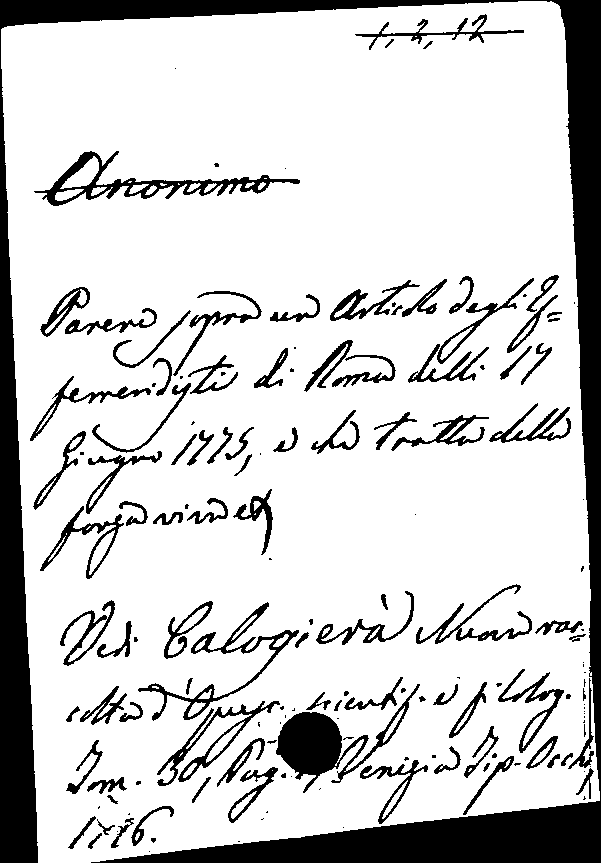 1, 2, 12
Anonimo
Parere sopra un Articolo degli Ef=
femeridisti di Roma delli 17
Giugno 1775, e che tratta della
forza viva
Vedi Calogierà Nuova rac=
colta d'Opusc. scientif. e filolog.
Tom. 30, Pag. Venezia Tip. Occhi,
1776.